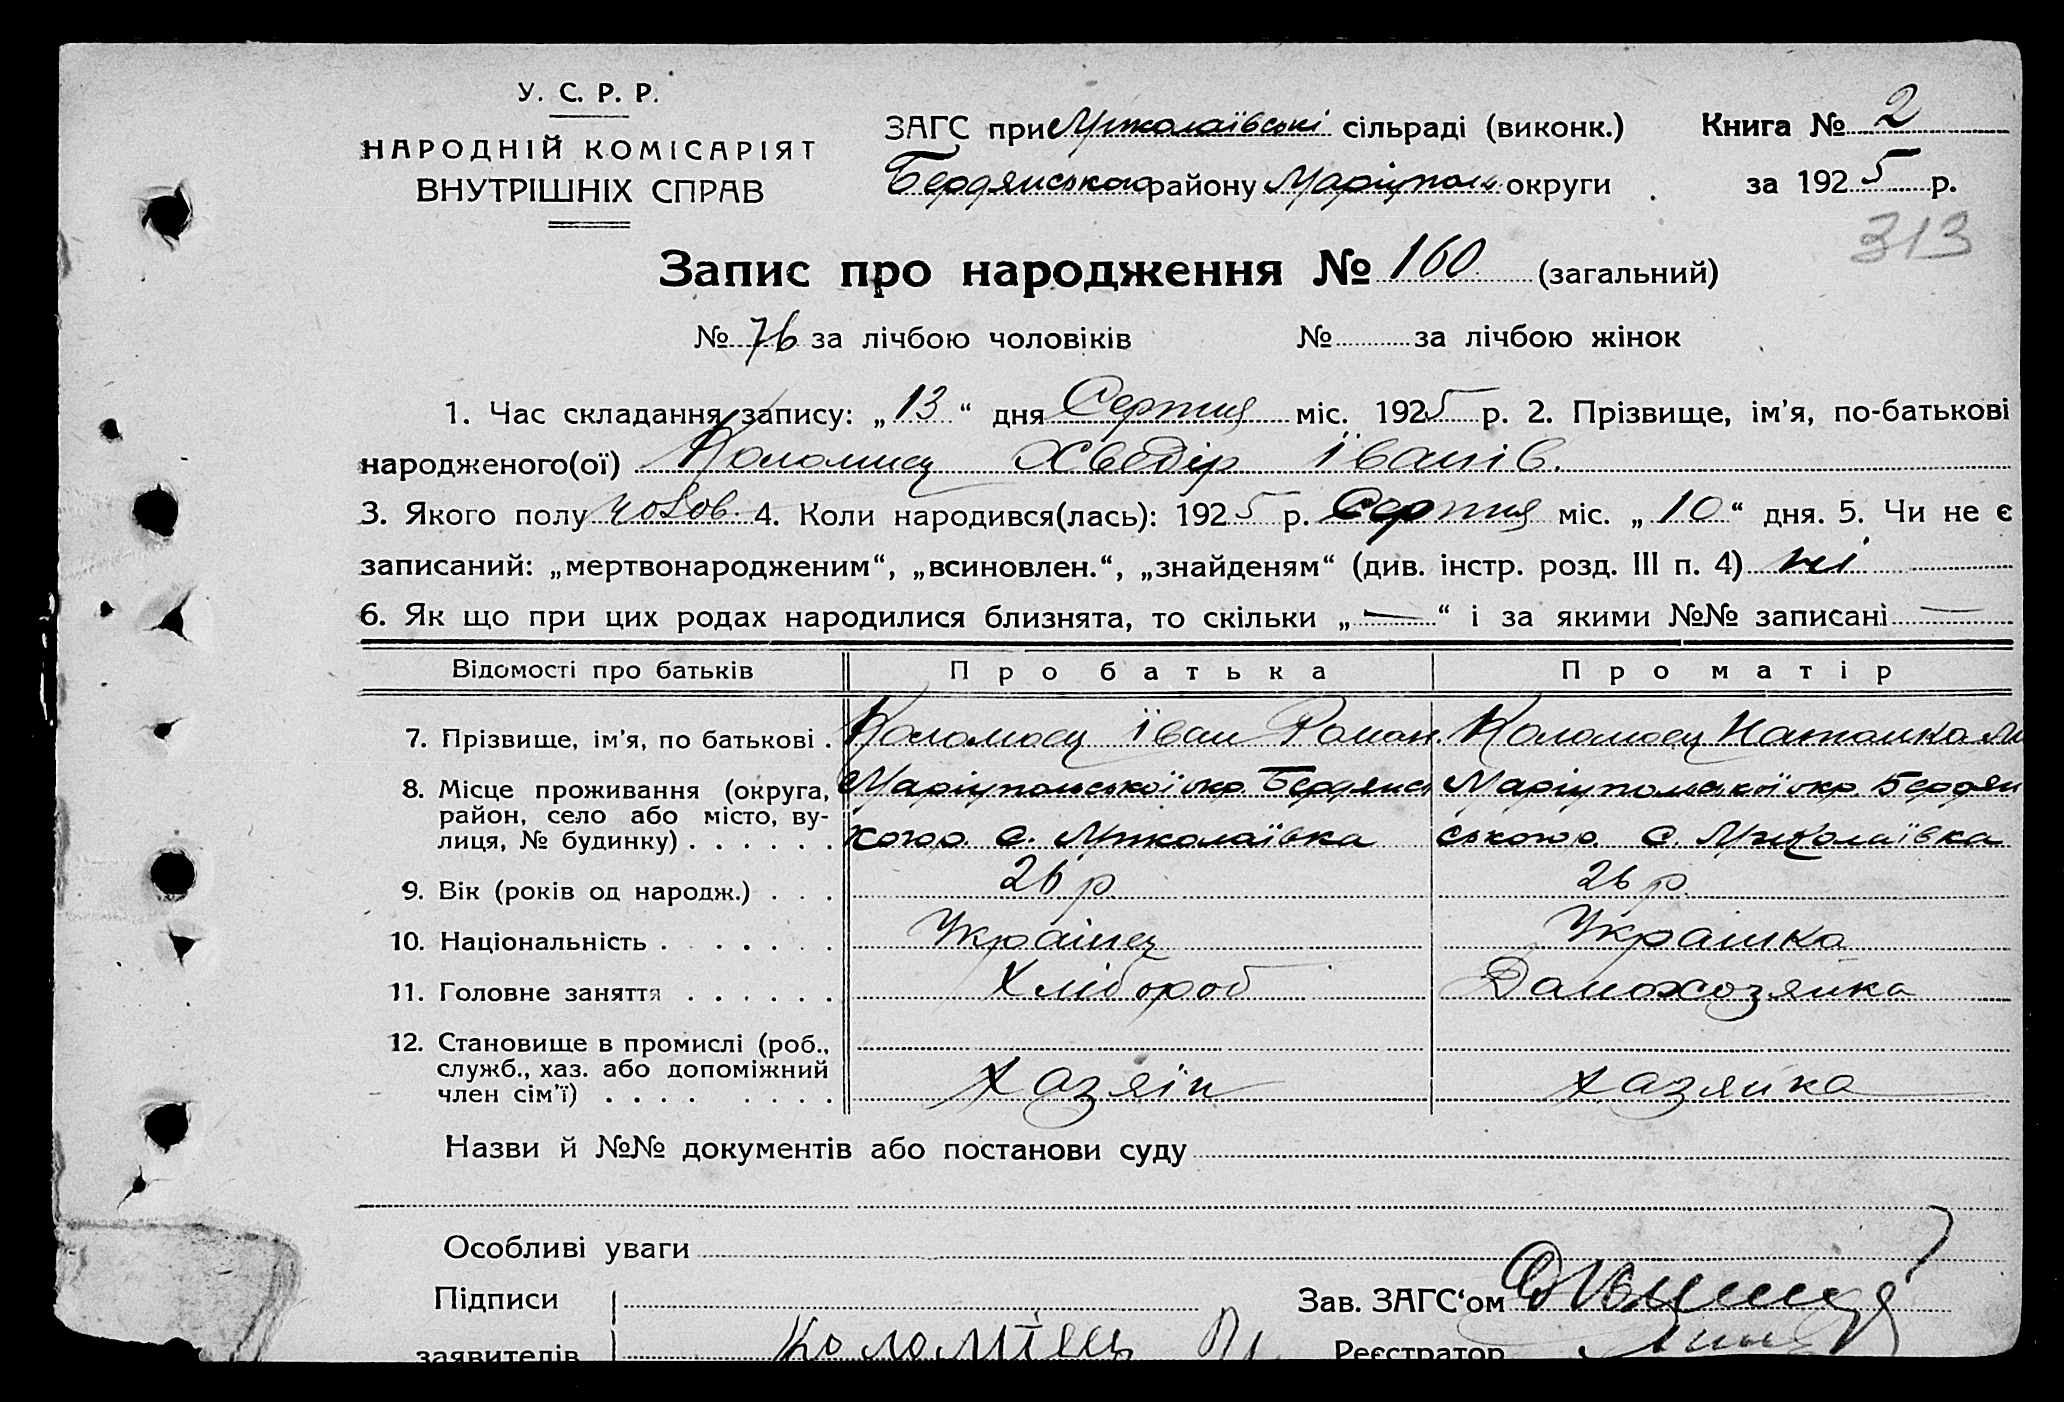 У. С. Р. Р.
НАРОДНІЙ КОМІСАРІЯТ
ВНУТРІШНІХ СПРАВ
ЗАГС при Миколаївські сільраді (виконк.) Книга № 2
Бердянського району Маріупол округи за 1925 р.
313
Запис про народження № 160 (загальний)
№ 76 за лічбою чоловіків № за лічбою жінок
1. Час складання запису: „13“ дня Серпня міс. 1925 р. 2. Прізвище, ім’я, по-батькові
народженого(ої) Коломиец Хведір Іванів.
3. Якого полу чолов. 4. Коли народився(лась): 1925 р. Серпня міс. „10“ дня. 5. Чи не є
записаний: „мертвонародженим“, „всиновлен.“, „знайденям“ (див. інстр. розд. III п. 4) ні
6. Як що при цих родах народилися близнята, то скільки „—“ і за якими №№ записані —
Відомості про батьків Про батька Про матір
7. Прізвище, ім’я, по батькові . Коломоец Іван Роман. Коломоец Наталка
8. Місце проживання (округа, Маріупольської окр. Бердянсь Маріупольської окр. Бердян
район, село або місто, ву-
лиця, № будинку) . . . . . . кого р. с. Миколаївка ського р. с. Миколаївка
9. Вік (років од народж.) . . . 26 р. 26 р.
10. Національність . . . . . . Українец Українка
11. Головне заняття . . . . . . Хлібороб Домохозяйка
12. Становище в промислі (роб.,
служб., хаз. або допоміжний
член сім’ї) . . . . . . . . Хазяін хазяйка
Назви й №№ документів або постанови суду
Особливі уваги
Підписи Зав. ЗАГС‘ом
заявителів Коломіец Реєстратор